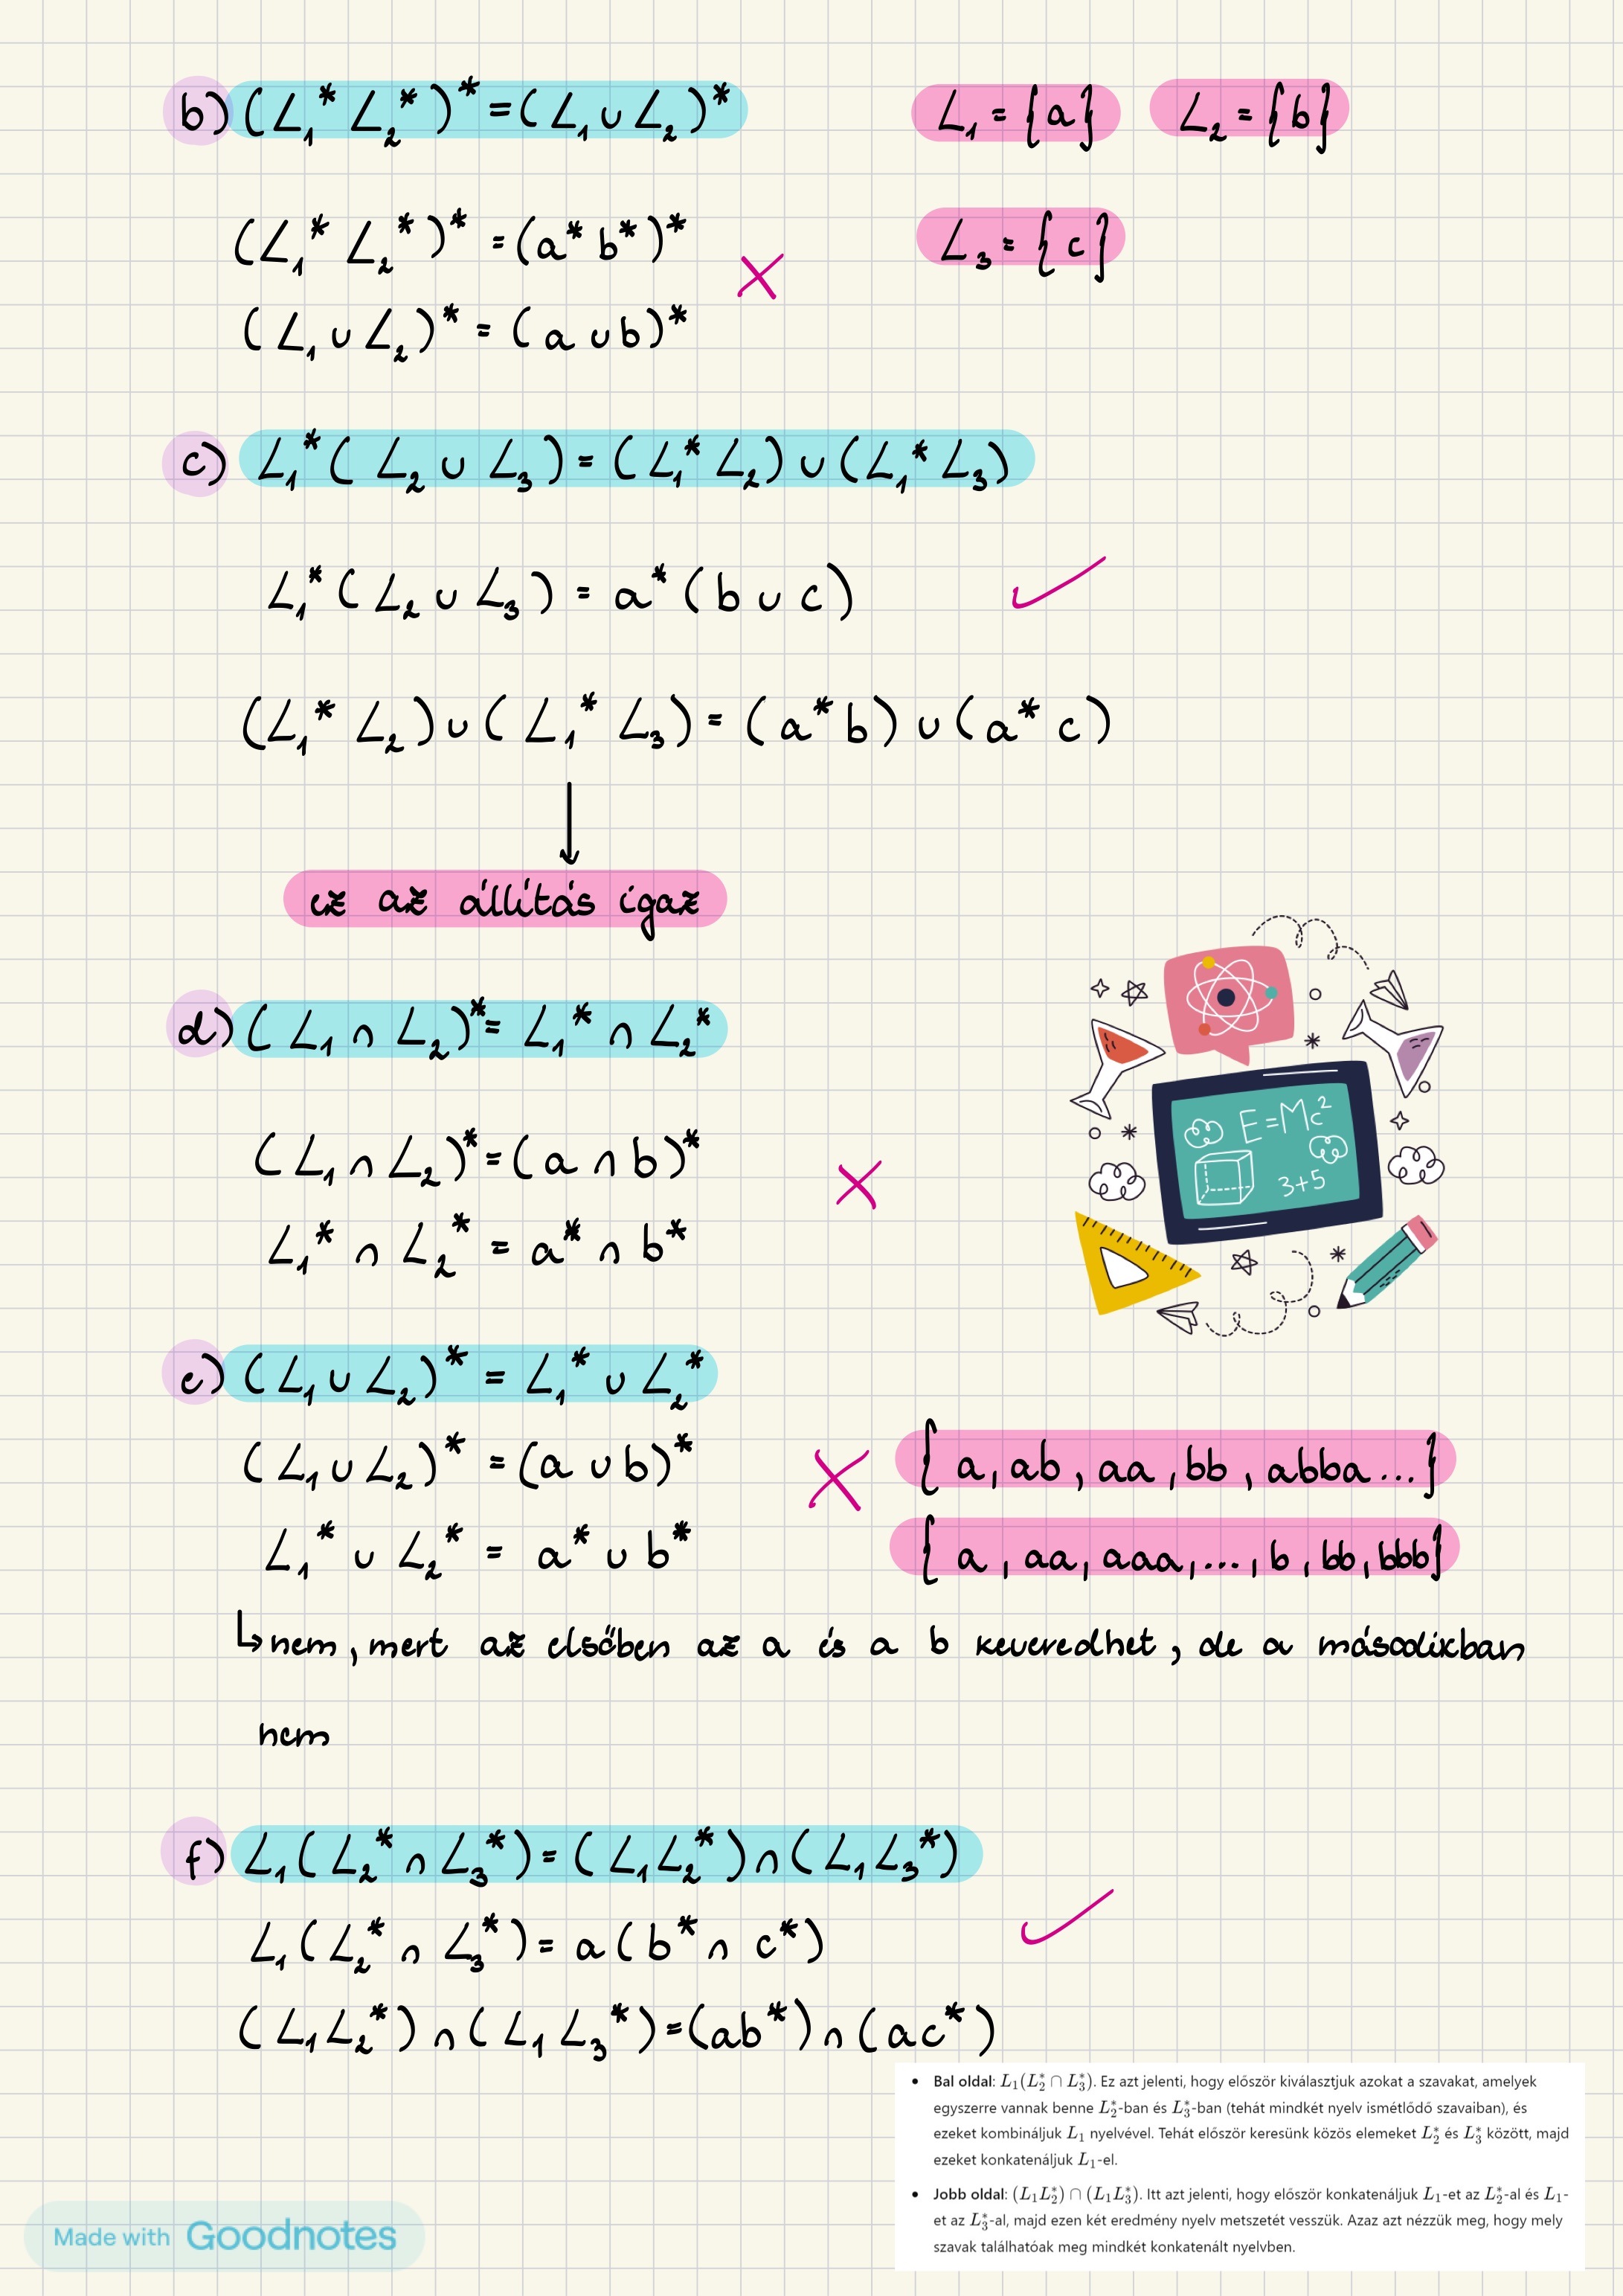 b) (L₁* L₂*)* = (L₁ ∪ L₂)*
L₁ = {a} L₂ = {b}
(L₁* L₂*)* = (a* b*)*
L₃ = {c}
(L₁ ∪ L₂)* = (a ∪ b)*
c) L₁* (L₂ ∪ L₃) = (L₁* L₂) ∪ (L₁* L₃)
L₁* (L₂ ∪ L₃) = a* (b ∪ c)
(L₁* L₂) ∪ (L₁* L₃) = (a* b) ∪ (a* c)
ez az állítás igaz
d) (L₁ ∩ L₂)* = L₁* ∩ L₂*
(L₁ ∩ L₂)* = (a ∩ b)*
L₁* ∩ L₂* = a* ∩ b*
E=Mc²
3+5
e) (L₁ ∪ L₂)* = L₁* ∪ L₂*
(L₁ ∪ L₂)* = (a ∪ b)* {a, ab, aa, bb, abba ...}
L₁* ∪ L₂* = a* ∪ b* {a, aa, aaa, ..., b, bb, bbb}
↳ nem, mert az elsőben az a és a b keveredhet, de a másodikban
nem
f) L₁(L₂* ∩ L₃*) = (L₁L₂*) ∩ (L₁L₃*)
L₁(L₂* ∩ L₃*) = a(b* ∩ c*)
(L₁L₂*) ∩ (L₁L₃*) = (ab*) ∩ (ac*)
• Bal oldal: L₁(L₂* ∩ L₃*). Ez azt jelenti, hogy először kiválasztjuk azokat a szavakat, amelyek
egyszerre vannak benne L₂*-ban és L₃*-ban (tehát mindkét nyelv ismétlődő szavaiban), és
ezeket kombináljuk L₁ nyelvével. Tehát először keresünk közös elemeket L₂* és L₃* között, majd
ezeket konkatenáljuk L₁-el.
• Jobb oldal: (L₁L₂*) ∩ (L₁L₃*). Itt azt jelenti, hogy először konkatenáljuk L₁-et az L₂*-al és L₁-
et az L₃*-al, majd ezen két eredmény nyelv metszetét vesszük. Azaz azt nézzük meg, hogy mely
szavak találhatóak meg mindkét konkatenált nyelvben.
Made with Goodnotes